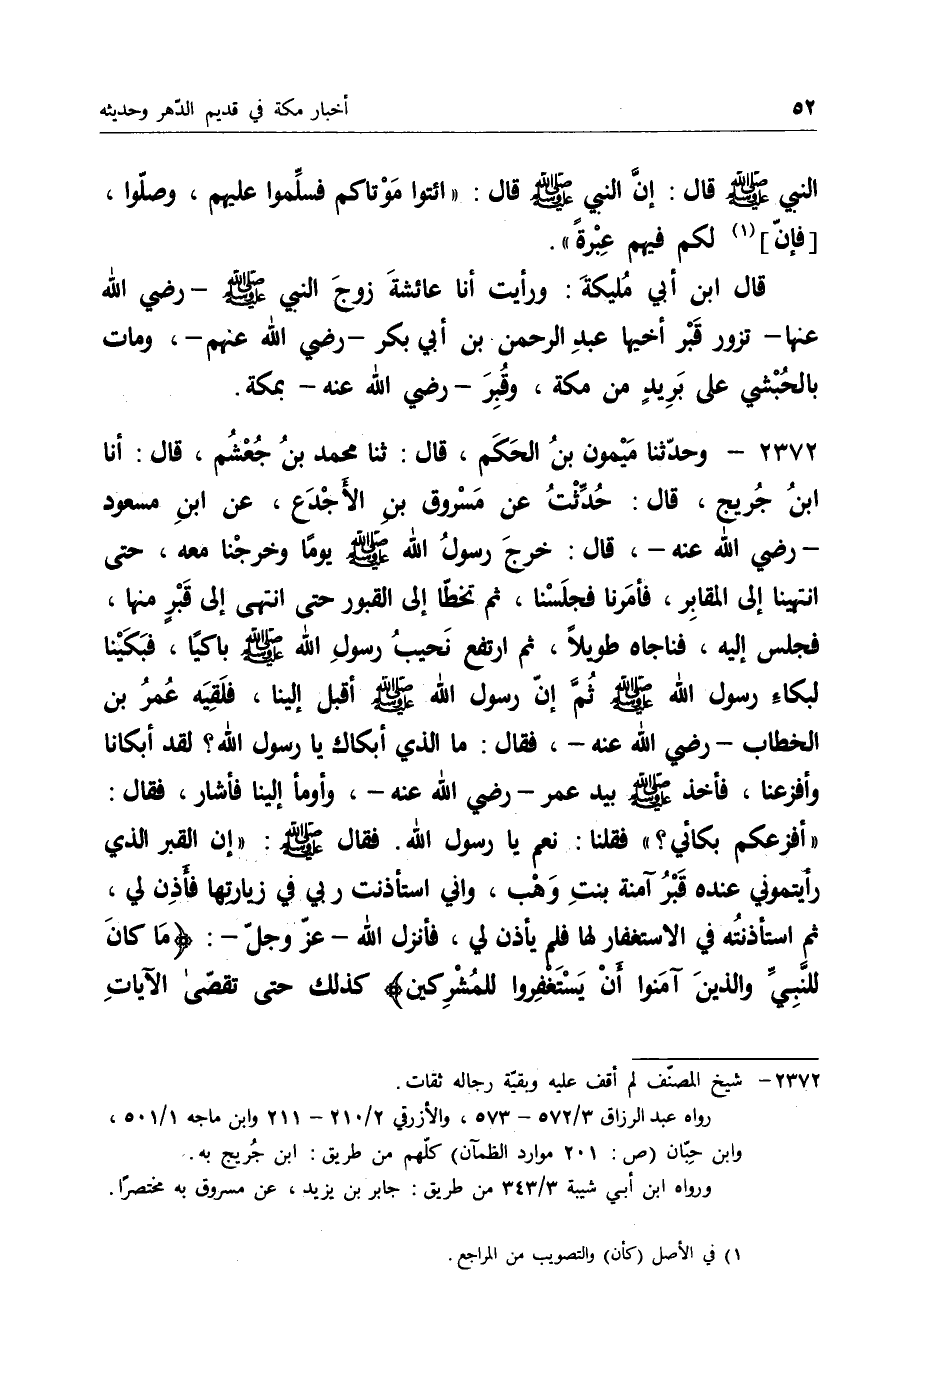 ٥٢ أخبار مكة في قديم الدّهر وحديثه
النبي ﷺ قال : إنَّ النبي ﷺ قال : « ائتوا مَوْتاكم فسلِّموا عليهم ، وصلّوا ،
[فإنّ] (١) لكم فيهم عِبْرةً» .
قال ابن أبي مُليكةَ : ورأيت أنا عائشةَ زوجَ النبي ﷺ – رضي الله
عنها – تزور قَبْر أخيها عبدِ الرحمن بن أبي بكر – رضي الله عنهم – ، ومات
بالحُبْشي على بَرِيدٍ من مكة ، وقُبِرَ – رضي الله عنه – بمكة .
٢٣٧٢ – وحدّثنا مَيْمون بنُ الحَكَم ، قال : ثنا محمد بنُ جُعْشُم ، قال : أنا
ابنُ جُريج ، قال : حُدِّثْتُ عن مَسْروق بنِ الأَجْدَع ، عن ابنِ مسعود
– رضي الله عنه – ، قال : خرجَ رسولُ الله ﷺ يومًا وخرجْنا معه ، حتى
انتهينا إلى المقابِر ، فأمَرنا فجلَسْنا ، ثم تخطّا إلى القبور حتى انتهى إلى قَبْرٍ منها ،
فجلس إليه ، فناجاه طويلاً ، ثم ارتفع نَحيبُ رسولِ الله ﷺ باكيًا ، فبَكَيْنا
لبكاءِ رسول الله ﷺ ثُمَّ إنّ رسول الله ﷺ أقبل إلينا ، فلَقِيَه عُمرُ بن
الخطاب – رضي الله عنه – ، فقال : ما الذي أبكاك يا رسول الله؟ لقد أبكانا
وأفزعنا ، فأخذ ﷺ بيد عمر – رضي الله عنه – ، وأومأ إلينا فأشار ، فقال :
«أفزعكم بكائي؟» فقلنا : نعم يا رسول الله . فقال ﷺ : «إن القبر الذي
رأيتموني عنده قَبْرُ آمنة بنتِ وَهْب ، واني استأذنت ربي في زيارتِها فأَذِن لي ،
ثم استأذنتُه في الاستغفار لها فلم يأذن لي ، فأنزل الله – عزّ وجلّ – : ﴿مَا كانَ
للنَّبِيِّ والذينَ آمَنوا أَنْ يَسْتَغْفِروا للمُشْرِكين﴾ كذلك حتى تقضّىٰ الآياتِ
٢٣٧٢ – شيخ المصنّف لم أقف عليه وبقيّة رجاله ثقات .
رواه عبد الرزاق ٥٧٢/٣ – ٥٧٣ ، والأزرقي ٢١٠/٢ – ٢١١ وابن ماجه ٥٠١/١ ،
وابن حبّان (ص : ٢٠١ موارد الظمآن) كلّهم من طريق : ابن جُريج به .
ورواه ابن أبي شيبة ٣٤٣/٣ من طريق : جابر بن يزيد ، عن مسروق به مختصرًا .
١) في الأصل (كأن) والتصويب من المراجع .